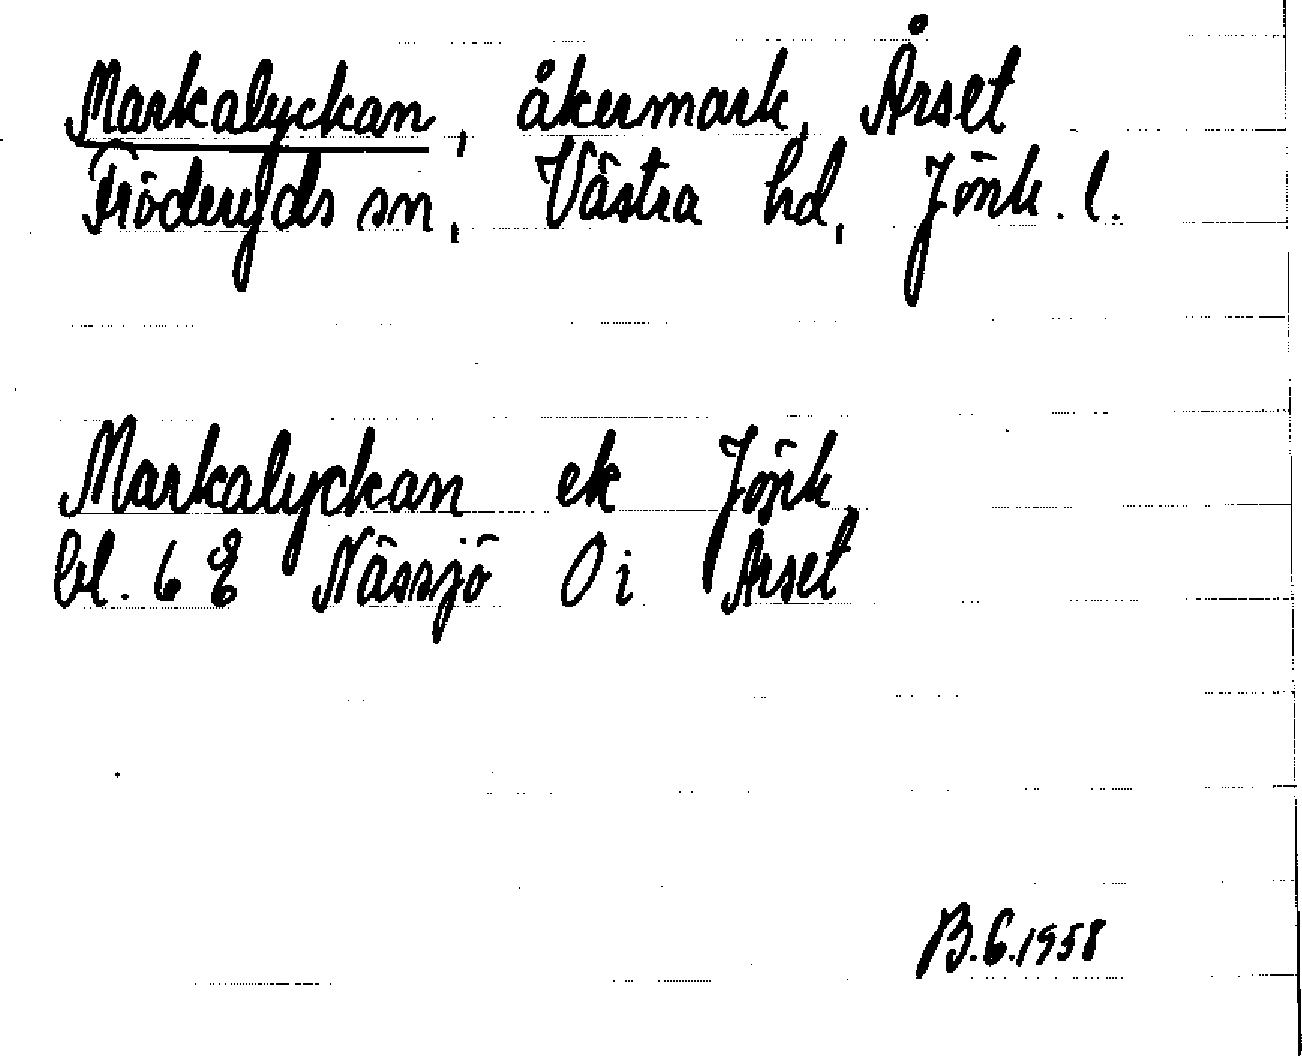 Markalyckan, åkermark, Årset
Fröderyds sn, Västra hd, Jönk. l.
Markalyckan ek Jönk.
bl. 6 E Nässjö O i Arset
B.G.1958